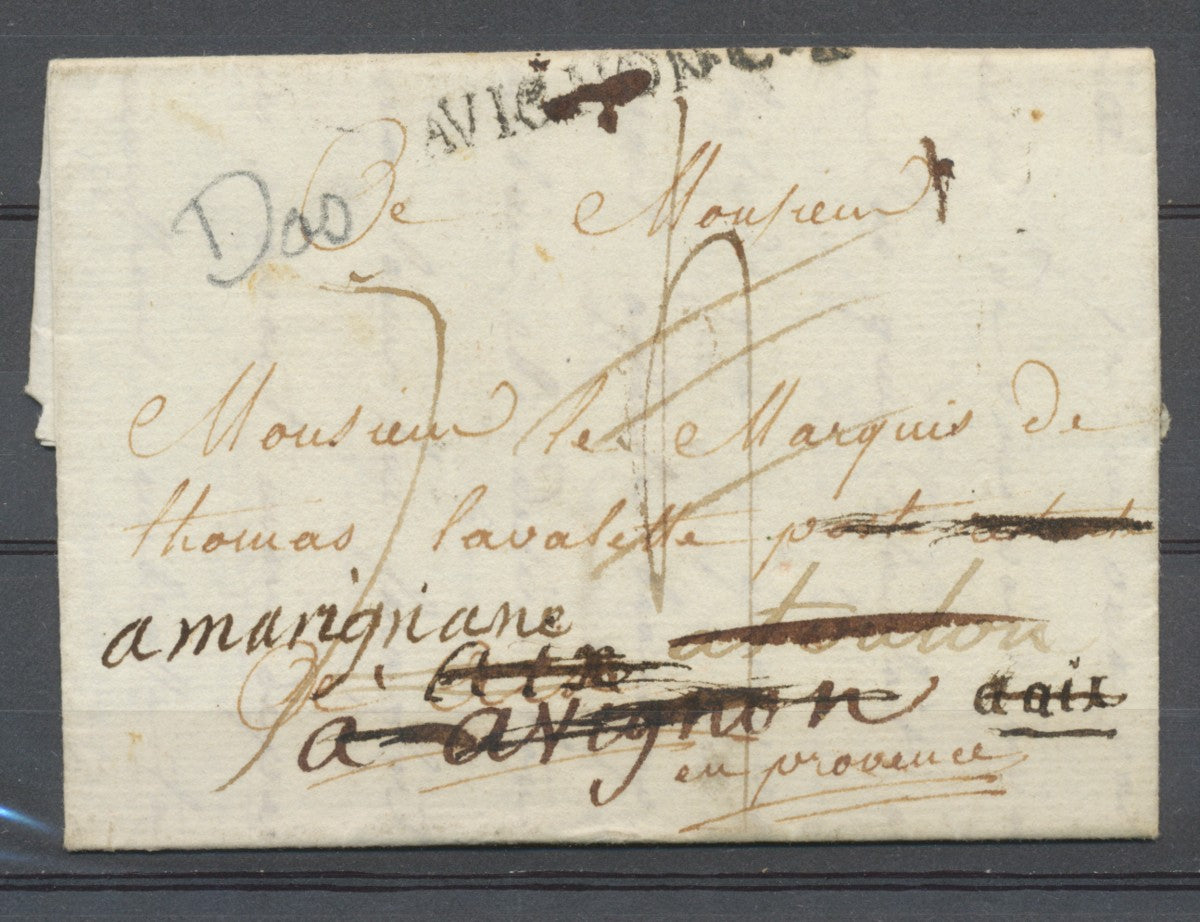 AVIGNON
De Monsieur
Monsieur le Marquis de
thomas lavalette
amarignane atoulon
De aix
a avignon a aix
en provence